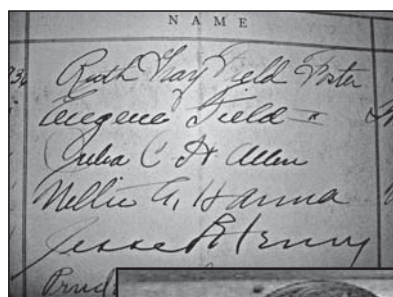 NAME
Ruth Gray Field Foster
Eugene Field II
Julia C H Allen
Nellie A. Hanna
Jesse B Henry